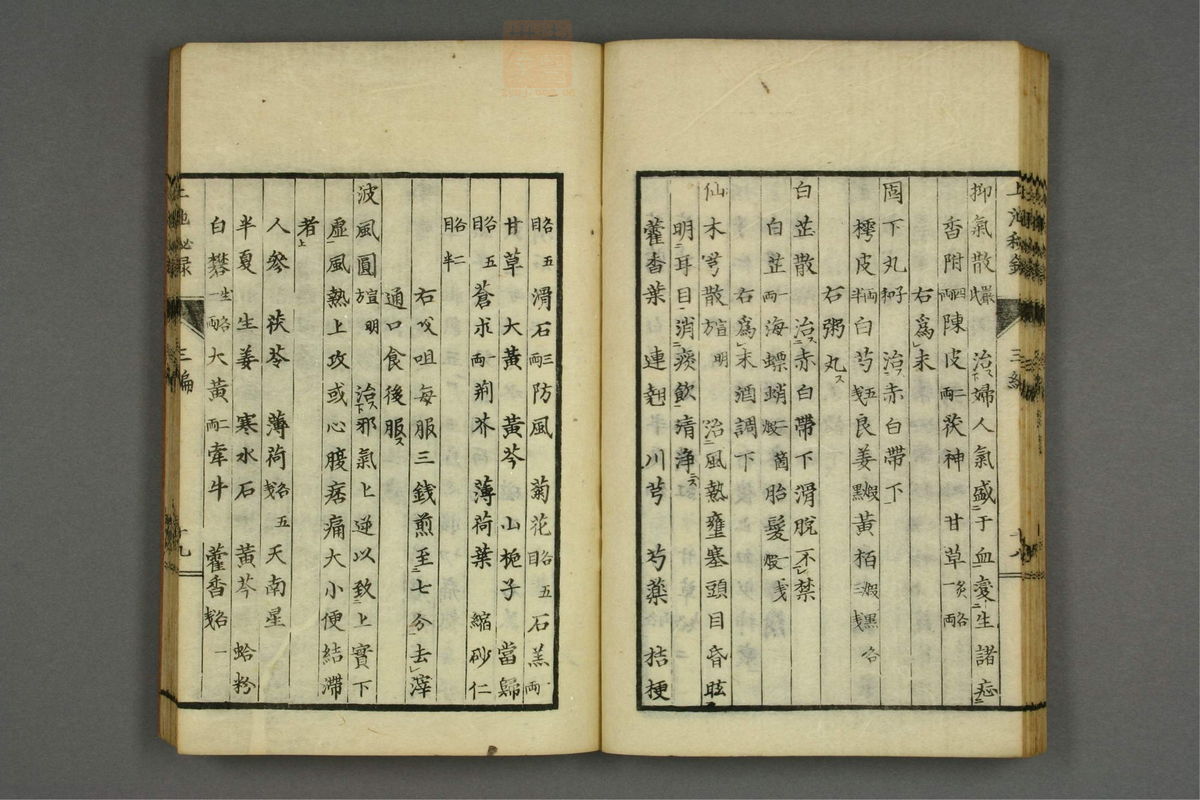 抑氣散嚴氏 治婦人氣盛于血変生諸症
香附四両陳皮二両茯神甘草一両炙各
右爲末
固下丸子和 治赤白帶下
樗皮両半白芍五戔良姜煅黒黃栢煅黒各三戔
右粥丸
白芷散 治赤白帶下滑脫不禁
白芷一両海螵蛸二箇煅胎髮一戔煅
右爲末酒調下
仙朮芎散宣明方 治風熱壅塞頭目昏眩
明耳目消痰飲清淨
藿香葉 連翹 川芎 芍藥 桔梗
五各目滑石三両防風 菊花五各目石羔一両
甘草 大黃 黃芩 山梔子 當歸
二各五目蒼朮一両荊芥 薄荷葉 縮砂仁
各目半
右㕮咀每服三錢煎至七分去滓
通口食後服
波風圓宣明方 治邪氣上逆以致上實下
虛風熱上攻或心腹痞痛大小便結滯
者
人參 茯苓 薄荷各五戔天南星
半夏 生姜 寒水石 黃芩 蛤粉
白礬生各一両大黃二両牽牛 藿香各一戔
三編
十八
三編
十九